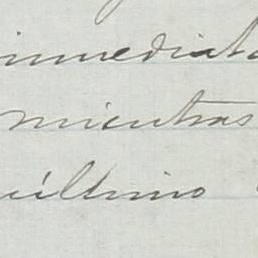 inmediata
mientras
último